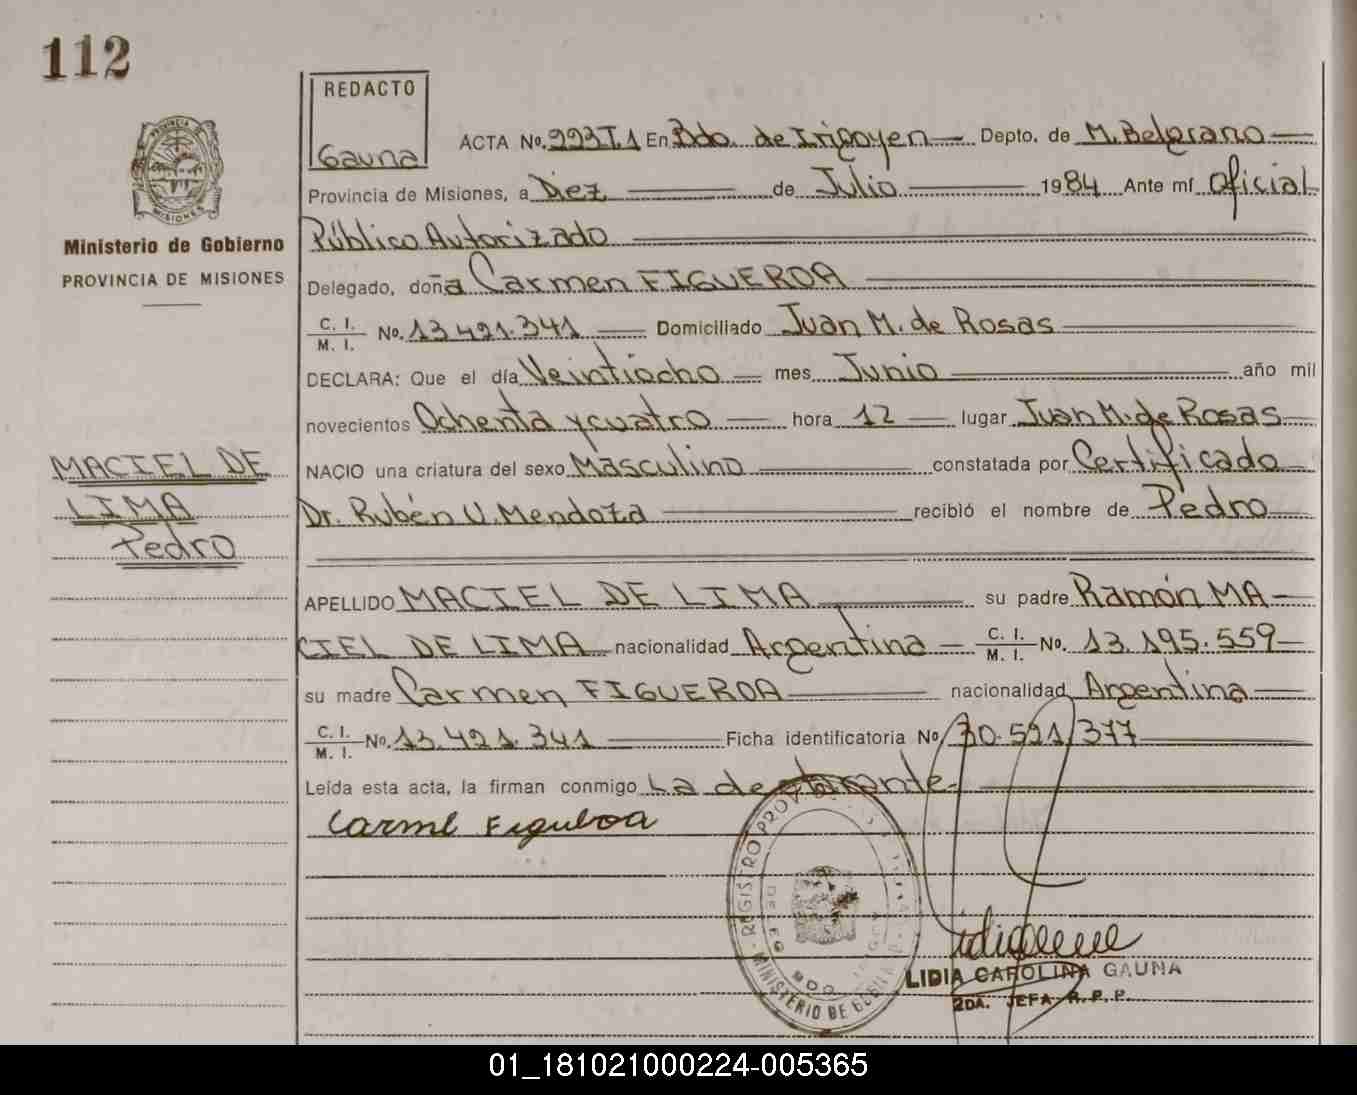 112
REDACTO
Gauna
ACTA No. 223T.1 En Bdo. de Irigoyen Depto. de M. Belgrano
Provincia de Misiones, a Diez de Julio 1984 Ante mí Oficial
Público Autorizado
Ministerio de Gobierno
PROVINCIA DE MISIONES
Delegado, doña Carmen FIGUEROA
C. I. M. I. No. 13.421.341 Domiciliado Juan M. de Rosas
DECLARA: Que el día Veintiocho mes Junio año mil
novecientos Ochenta y cuatro hora 12 lugar Juan M. de Rosas
NACIO una criatura del sexo Masculino constatada por Certificado
Dr. Rubén U. Mendoza recibió el nombre de Pedro
MACIEL DE
LIMA
Pedro
APELLIDO MACIEL DE LIMA su padre Ramón MA-
CIEL DE LIMA nacionalidad Argentina C. I. M. I. No. 13.195.559
su madre Carmen FIGUEROA nacionalidad Argentina
C. I. M. I. No. 13.421.341 Ficha identificatoria No 30.521.377
Leída esta acta, la firman conmigo La declarante
Carme Figueroa
REGISTRO PROV.
MINISTERIO DE
LIDIA CAROLINA GAUNA
2DA. JEFA R.P.P.
01_181021000224-005365